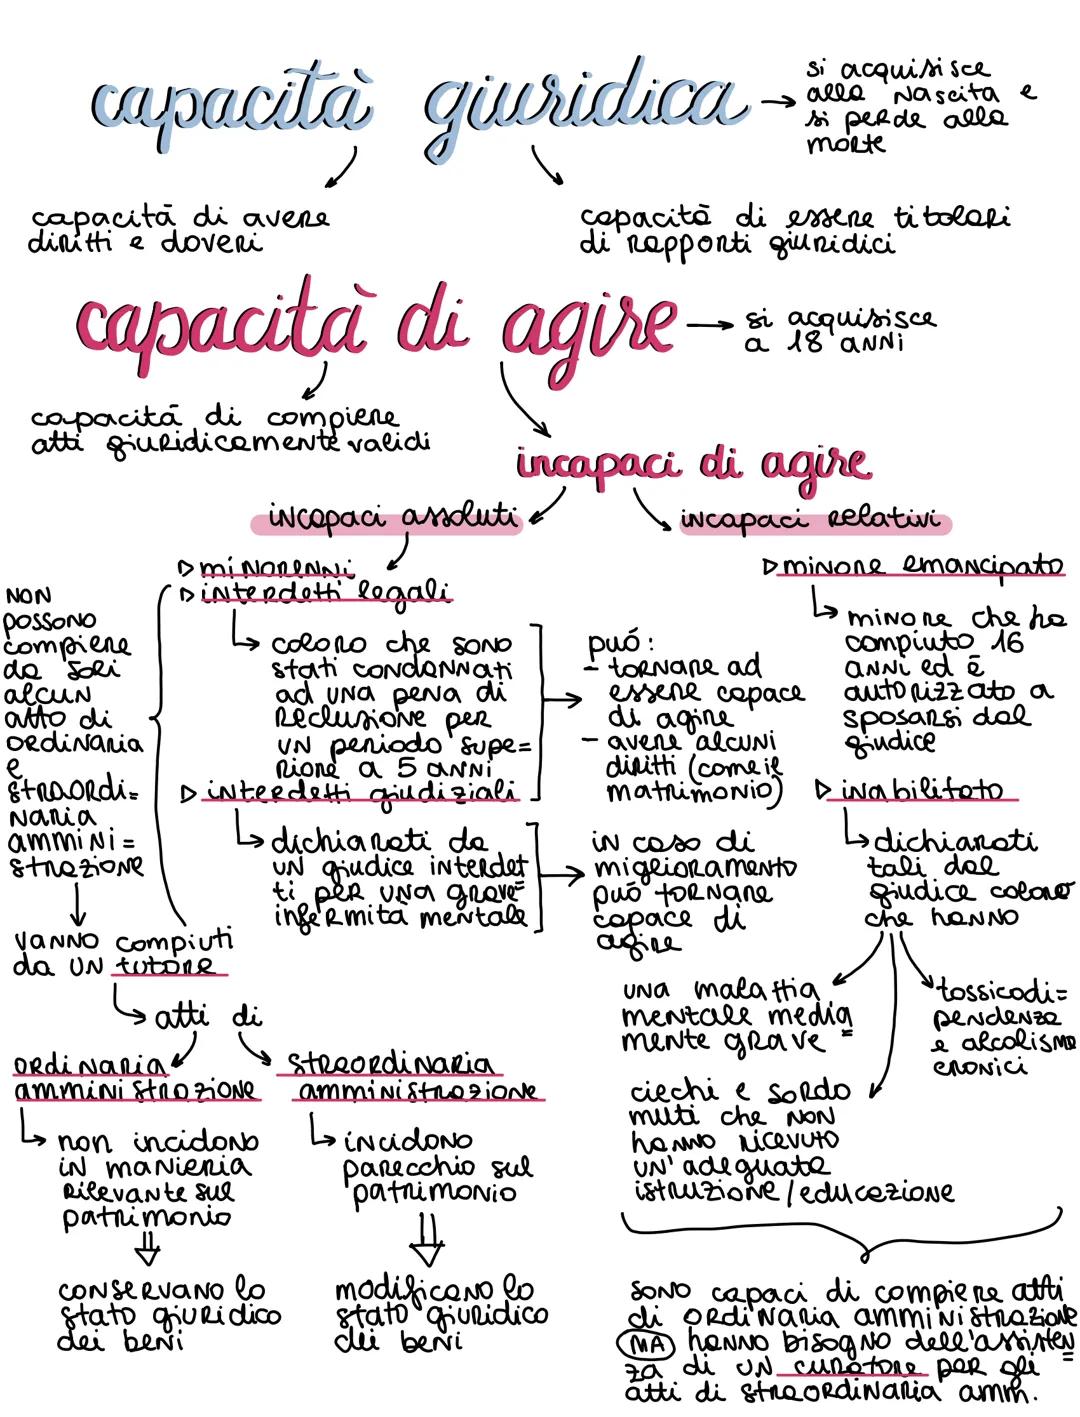 capacità giuridica
si acquisisce
alla nascita e
si perde alla
morte
capacità di avere
diritti e doveri
capacità di essere titolari
di rapporti giuridici
capacità di agire
si acquisisce
a 18 anni
capacità di compiere
atti giuridicamente validi
incapaci di agire
incapaci assoluti
minorenni
interdetti legali
coloro che sono
stati condannati
ad una pena di
reclusione per
un periodo supe=
riore a 5 anni
può:
- tornare ad
essere capace
di agire
- avere alcuni
diritti (come il
matrimonio)
interdetti giudiziali
dichiarati da
un giudice interdet=
ti per una grave
infermità mentale
in caso di
miglioramento
può tornare
capace di
agire
non
possono
compiere
da soli
alcun
atto di
ordinaria
e
straordi=
naria
ammini=
strazione
vanno compiuti
da un tutore
atti di
ordinaria
amministrazione
non incidono
in manieria
rilevante sul
patrimonio
conservano lo
stato giuridico
dei beni
straordinaria
amministrazione
incidono
parecchio sul
patrimonio
modificano lo
stato giuridico
dei beni
incapaci relativi
minore emancipato
minore che ha
compiuto 16
anni ed è
autorizzato a
sposarsi dal
giudice
inabilitato
dichiarati
tali dal
giudice coloro
che hanno
una malattia
mentale media=
mente grave
tossicodi=
pendenza
e alcolismo
cronici
ciechi e sordo
muti che non
hanno ricevuto
un'adeguata
istruzione/educazione
sono capaci di compiere atti
di ordinaria amministrazione
MA hanno bisogno dell'assisten=
za di un curatore per gli
atti di straordinaria amm.